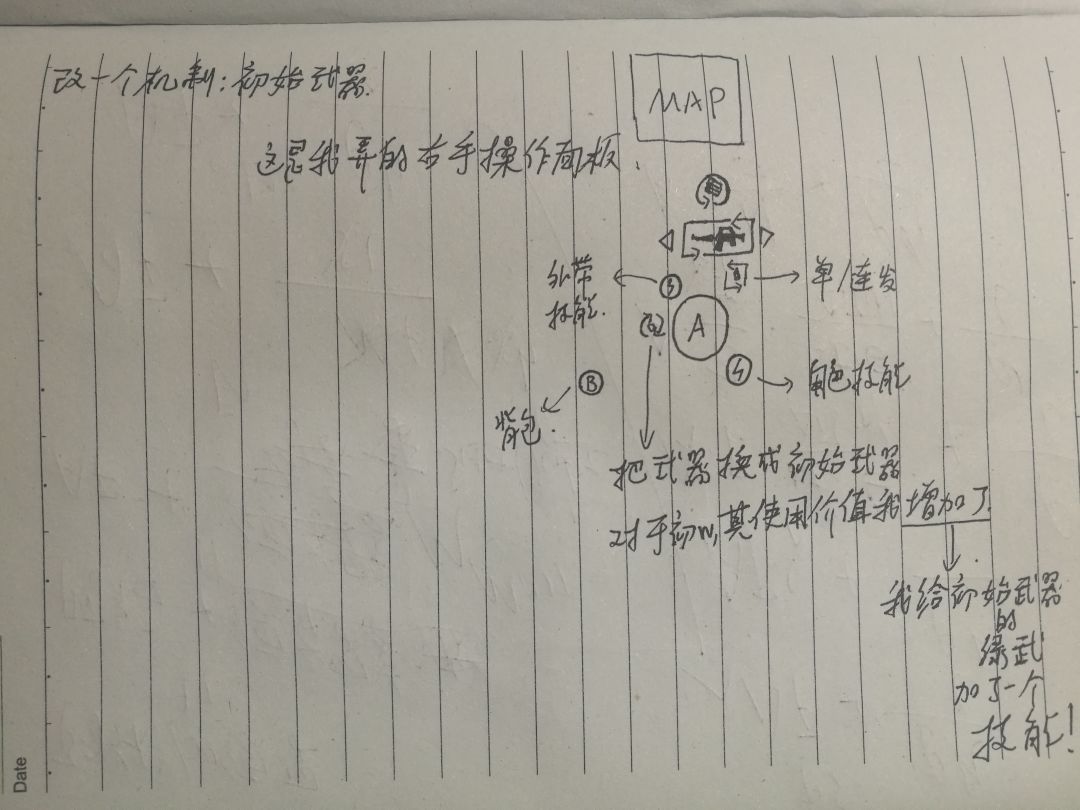 改一个机制:初始武器.
MAP
这是我弄的右手操作面板.
外带
技能.
单/连发
A
角色技能
B
背包.
把武器换成初始武器
对于初W,其使用价值我增加了.
我给初始武器
的
绿武
加了一个
技能!
Date